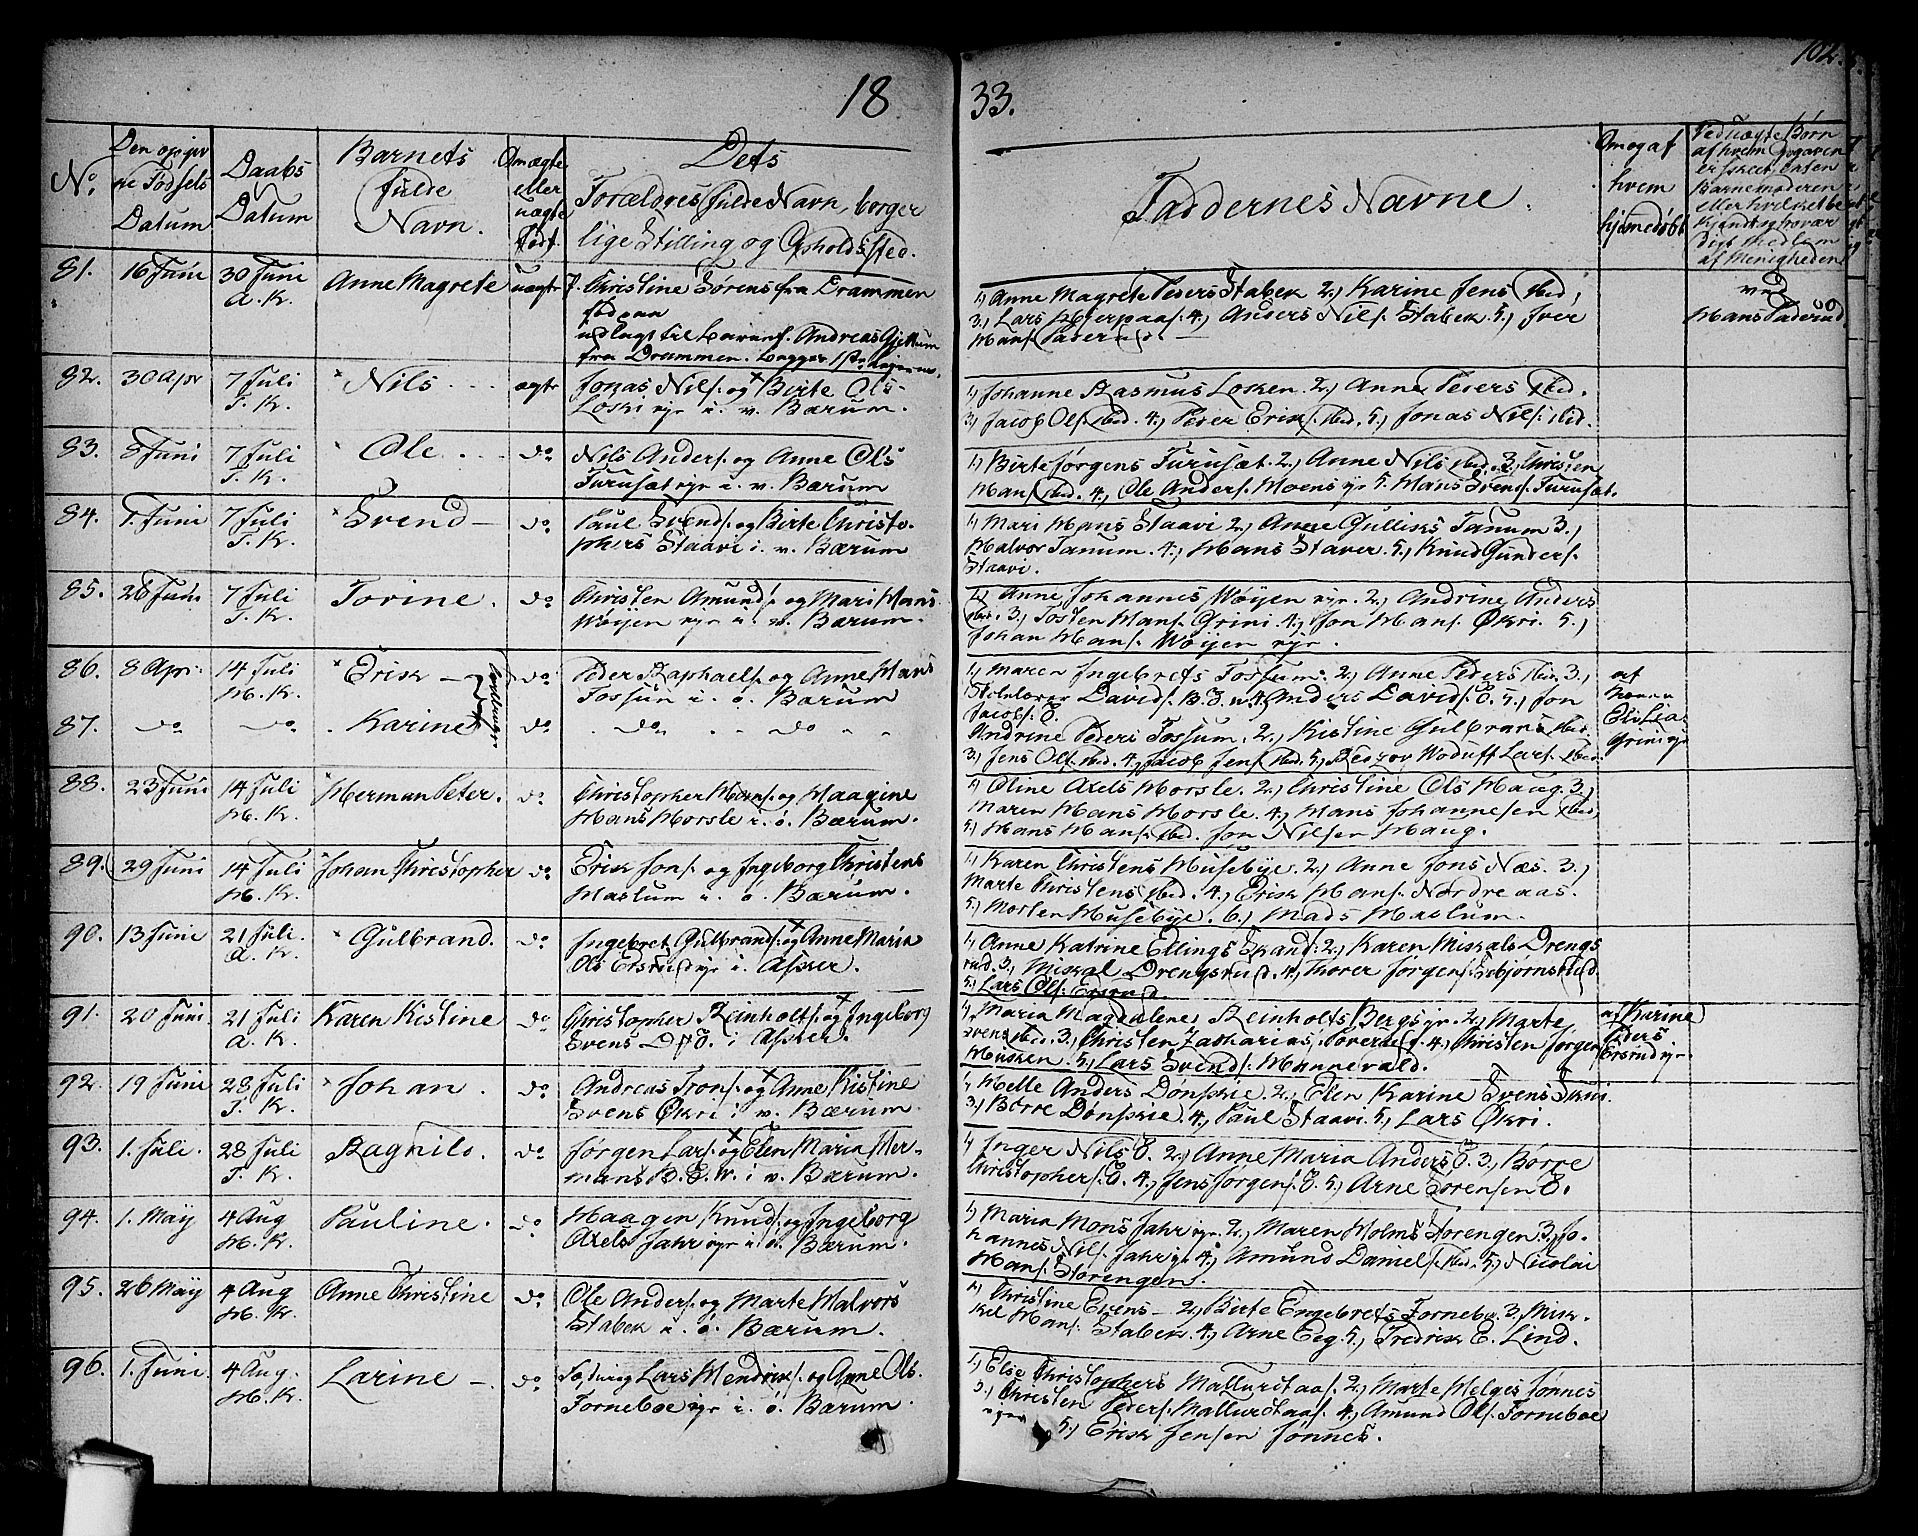 18
33.
102.
No.
Den opgiv
ne Födsels
Datum
Daabs
Datum
Barnets
fulde
Navn.
Om ægte
eller
uægte
født.
Dets
Forældres fulde Navn, borger
lige Stilling og Opholdssted.
Faddernes Navne.
Om og af
hvem
hjemedøbt
Ved uægte Børn
af hvem Opgaven
er skeet, enten
Barnemoderen
eller hvilket be
kjendt og trovær
digt Medlem
af Menigheden
81.
16 Juni
30 Juni
A. K.
Anne Magrete
uægte
Christine Sörens fra Drammen
udlagt til Barnef. Andreas
fra Drammen. begges 1ste Leierm.
1, Anne Magrete Peders Stabek 2, Karine Jens ibid,
3, Lars Hjerpaas. 4, Anders Nils. Stabek 5, Iver
Hans. Paderud —
ved
Hans Paderud.
82.
30 Apr
7 Juli
T. K.
Nils
ægte
Jonas Nils. og Birte Ols
Loski eyr i. v. Bærum.
1, Johanne Rasmus Losken. 2, Anne Peders ibid.
3, Jacob Ols. ibid. 4, Peder Erik. ibid. 5, Jonas Nils. ibid.
83.
8 Juni
7 Juli
T. K.
Ole
do
Nils Anders. og Anne Ols
Turusæt eyr i. v. Bærum
1, Birte Jörgens Turusæt. 2, Anne Nils ibid. 3, Christen
Hans. ibid. 4, Ole Anders. Moens eyr 5. Hans Svends. Turusæt.
84.
1. Juni
7 Juli
T. K.
Svend —
do
Paul Svends. og Birte Christo-
phers Staavi i. v. Bærum
1, Mari Hans Staavi 2, Anne Gulliks Tanum 3,
Halvor Tanum. 4, Hans Staver. 5, Knud Gunders.
Staavi.
85.
28 Juni
7 Juli
T. K.
Torine.
do
Christen Amunds. og Mari Hans
Wøijen eyr i. v. Bærum.
1, Anne Johannes Wøijen eyr. 2, Andrine Anders
ibid. 3, Tosten Hans. Grini 4, Jon Hans. Økri. 5,
Johan Hans. Wøijen eyr.
86.
8 Apr.
14 Juli
H. K.
Erik —
Tvillinger
do
Peder Raphaels. og Anne Hans
Fossum i. ö. Bærum
1, Maren Ingebrets Fossum. 2, Anne Peders ibid. 3,
Skolelærer Davids. B. 4, Anders Davids. E. 5, Jon
Jacobs. E.
af
Eli Lia
Grini eje
87.
do
do
Karine
do
do do
Andrine Peders Fossum. 2, Kistine Gulbrans ibid.
3, Jens Ols. ibid. 4, Jacob Jens. ibid. 5, Lars. ibid.
88.
23 Juni
14 Juli
H. K.
Herman Peter.
do
Christopher Hans. og Haagine
Hans Horsle i. ö. Bærum.
1, Oline Axels Horsle. 2, Christine Ols Haug. 3,
Maren Hans Horsle. 4, Hans Johannesen ibid,
5, Hans Hans. ibid. Jon Nilsen Haug.
89.
29 Juni
14 Juli
H. K.
Johan Christopher
do
Erik Jons. og Ingeborg Christens
Haslum i. ö. Bærum.
1, Karen Christens Husebye. 2, Anne Jons Næs. 3,
Marte Christens ibid. 4, Erik Hans. Nordre aas.
5, Morten Husebye. 6, Mads Haslum.
90.
13 Juni
21 Juli.
A. K.
Gulbrand.
do
Ingebret Gulbrands. og Anne Maria
Ols Ersrud eyr i. Asker.
1, Anne Katrine Ellings Skands. 2, Karen Mikals Drengs
rud. 3, Mikal Drengsrud. 4, Thorer Jörgens. Esbjørnsrud.
5, Lars Ols. Ersrud.
91.
20 Juni.
21 Juli
A. K.
Karen Kistine
do
Christopher Reinholts. og Ingeborg
Svens i Asker.
1, Maria Magdalene Reinholts Bergs eyr. 2, Marte
Svens ibid. 3, Christen Zacharias. 4, Christen Jörgens
Husken. 5, Lars Svends. Hunnevald.
af Karine
Peders
Ersrud eje
92.
19 Juni
28 Juli
T. K.
Johan.
do
Andreas Trons. og Anne Kistine
Svens Økri i v. Bærum
1, Helle Anders Dønskie. 2, Elen Karine Svens Skui
3, Börre Dønskie. 4, Paul Staavi. 5, Lars Økri.
93.
1. Juli.
28 Juli
T. K.
Ragnild.
do
Jørgen Lars. og Elen Maria Her-
mans B. E. W. i v. Bærum.
1, Inger Nils E. 2, Anne Maria Anders E. 3, Börre
Christophers. E. 4, Jens Jörgens. E. 5, Arne Sörensen E.
94.
1. May
4 Aug
H. K.
Pauline.
do
Haagen Knuds. og Ingeborg
Axels Jahr eyr i ö. Bærum.
1, Maria Mons Jahr eyr. 2, Maren Holms Storengen 3, Jo-
hannes Nils. Jahr eje 4, Amund Daniels. ibid. 5, Nicolai
Hans. Storengen.
95.
26 May
4 Aug
H. K.
Anne Christine
do
Ole Anders. og Marte Halvors
Stabek i. ö. Bærum.
1, Christine Evens — 2, Birte Engebrets Fornebo. 3, Mik-
kel Hans. Stabek. 4, Arne Eeg. 5, Fredrik E. Lind.
96.
1. Juni.
4 Aug.
H. K.
Larine —
do
Lars Hendriks. og Anne Ols.
Forneboe eje i. ö. Bærum.
1, Else Christophers Mallurdtaas. 2, Marte Helges Tönnes
3, Christen Peders. Mallurdtaas. 4, Amund Ols. Forneboe
5, Erik Jensen Tönnes.